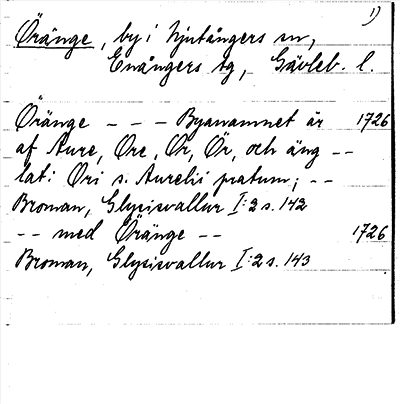 1)
Öränge, by i Njutångers sn,
Enångers tg, Gävleb. l.
Öränge - - - Byanamnet är 1726
af Aure, Ore, Or, Ör, och äng - -
lat: Ori s. Aurelii pratum; - -
Broman, Glysisvallur I:2 s. 142
- - med Öränge - - 1726
Broman, Glysisvallur I:2 s. 143